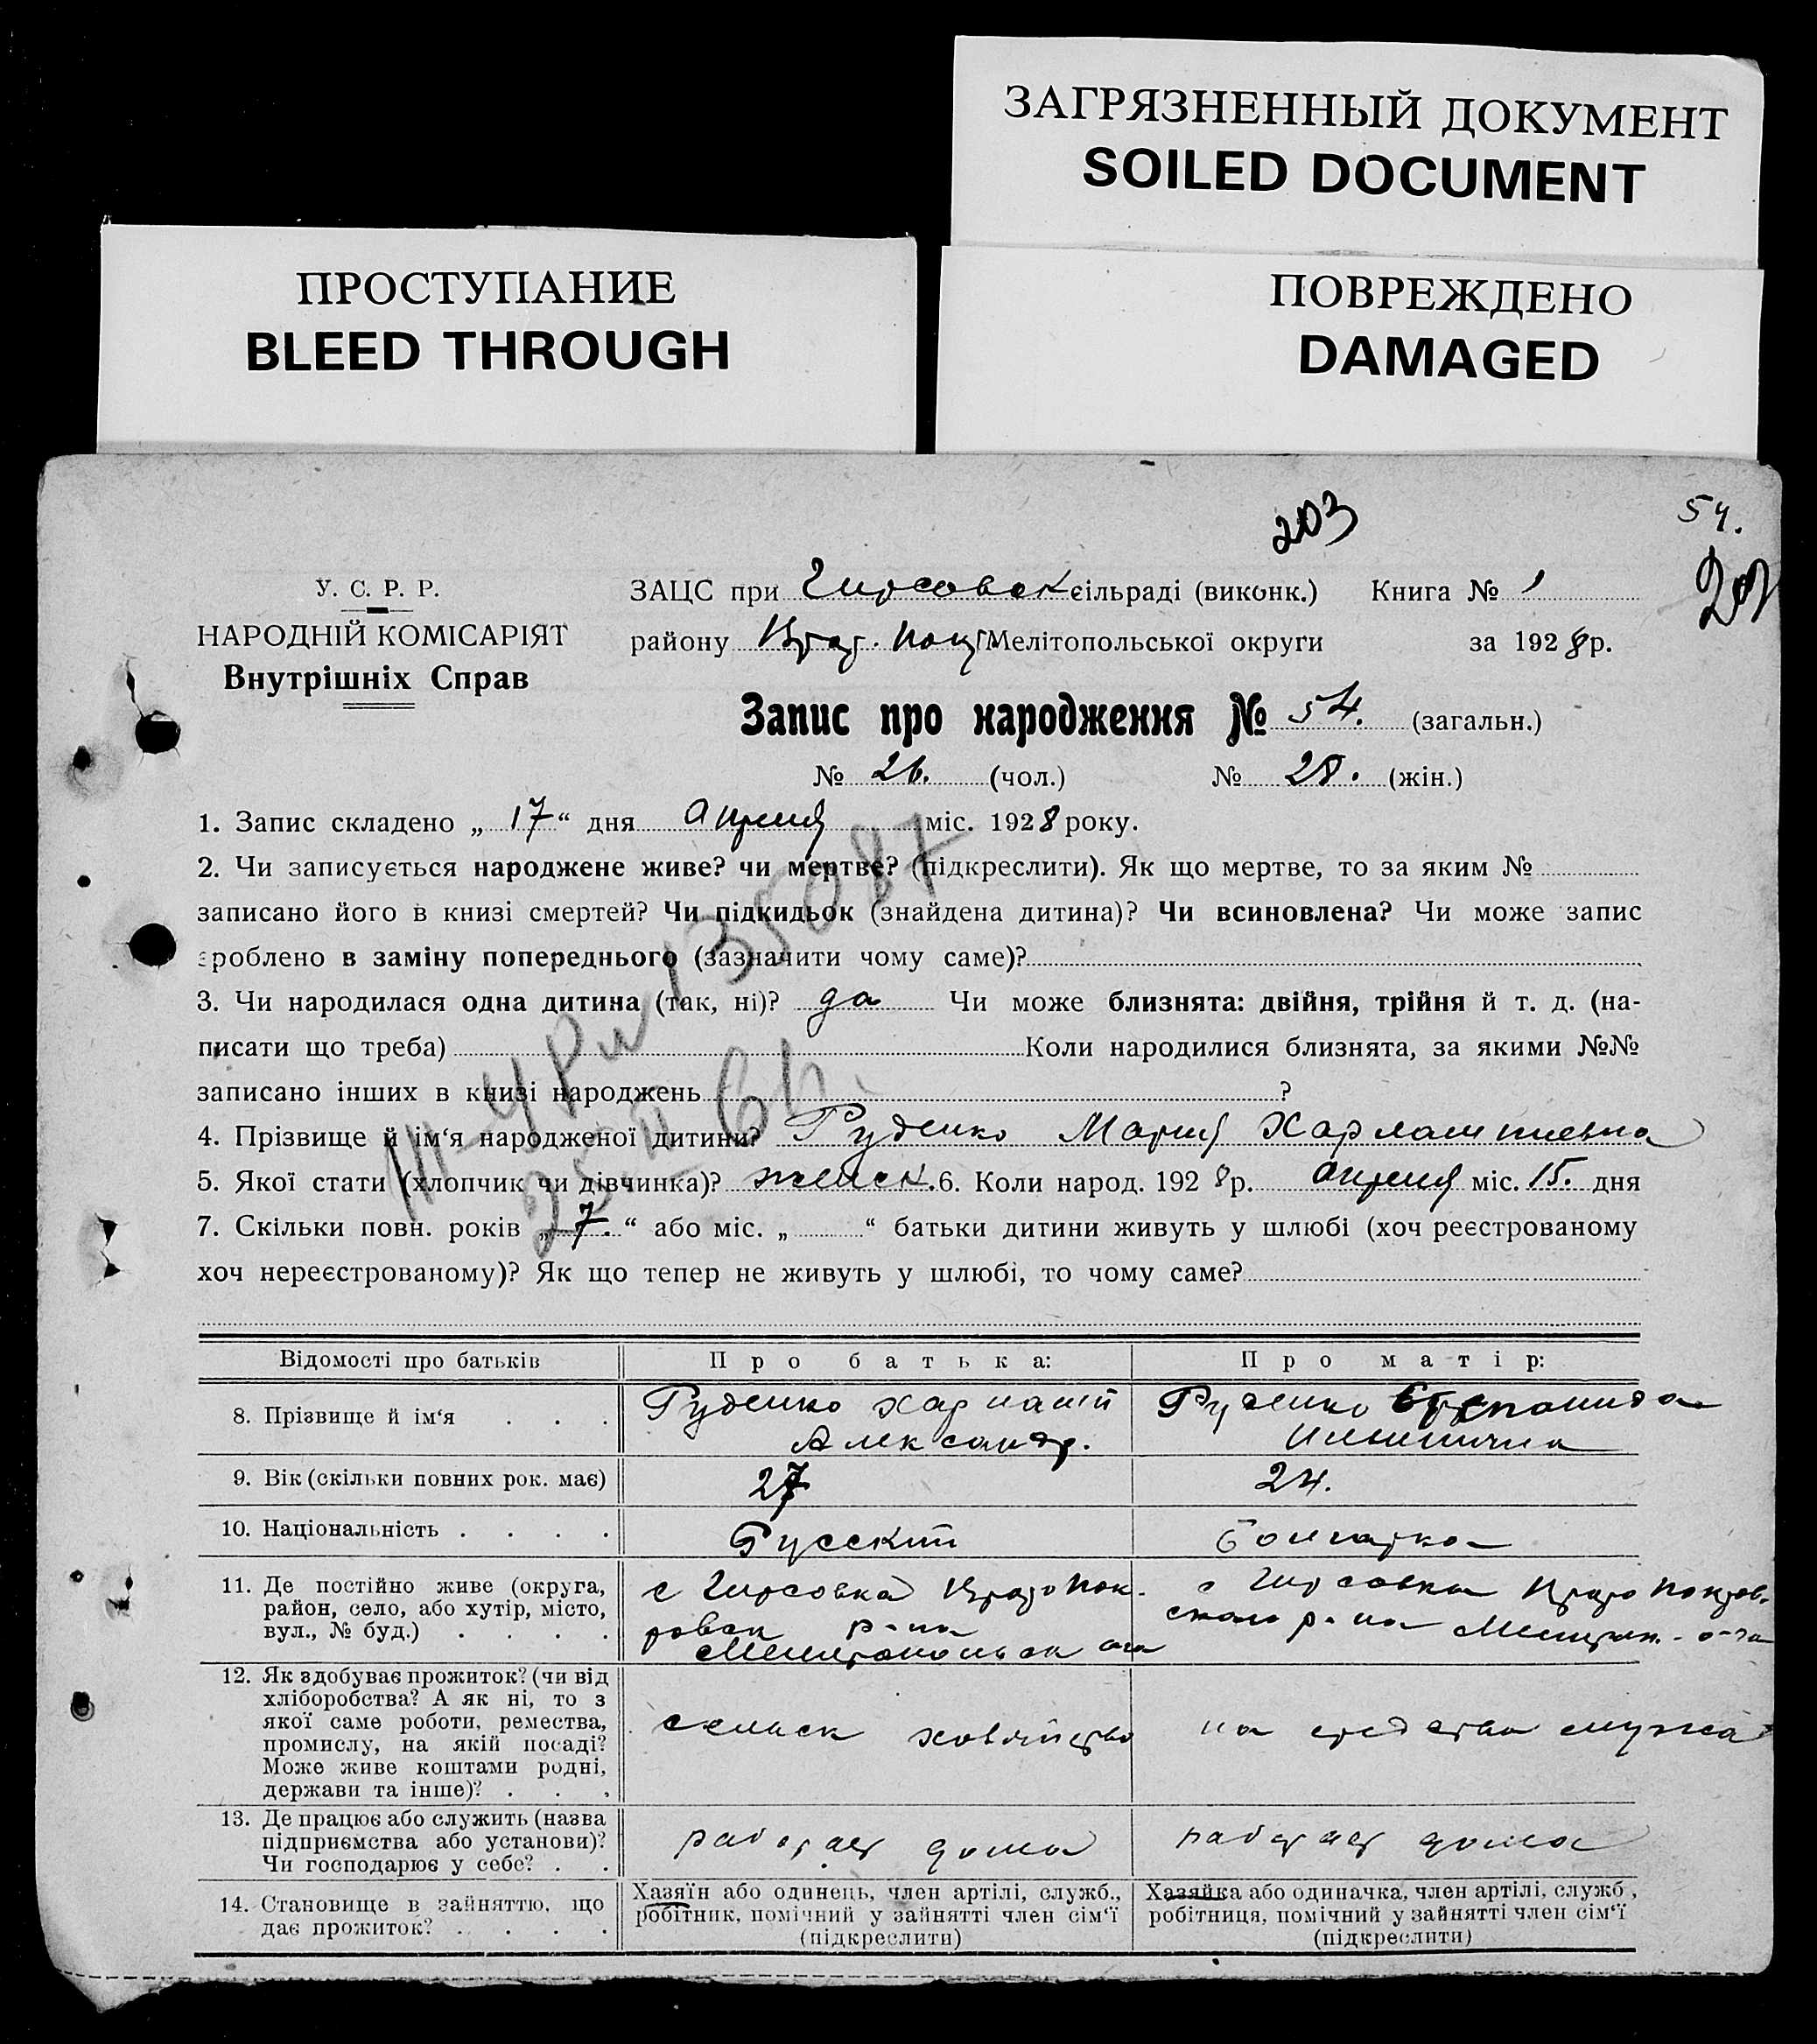 ЗАГРЯЗНЕННЫЙ ДОКУМЕНТ
SOILED DOCUMENT
ПРОСТУПАНИЕ
BLEED THROUGH
ПОВРЕЖДЕНО
DAMAGED
203
54.
202
У. С. Р. Р.
НАРОДНІЙ КОМІСАРІЯТ
Внутрішніх Справ
ЗАЦС при Гирсовск сільраді (виконк.) Книга № 1
району Мелітопольської округи за 1928 р.
Запис про народження № 54. (загальн.)
№ 26. (чол.) № 28. (жін.)
1. Запис складено „ 17 “ дня апреля міс. 1928 року.
2. Чи записується народжене живе? чи мертве? (підкреслити). Як що мертве, то за яким №
записано його в книзі смертей? Чи підкидьок (знайдена дитина)? Чи всиновлена? Чи може запис
зроблено в заміну попереднього (зазначити чому саме)?
3. Чи народилася одна дитина (так, ні)? да Чи може близнята: двійня, трійня й т. д. (на-
писати що треба) Коли народилися близнята, за якими №№
записано інших в книзі народжень ?
4. Прізвище й ім‘я народженої дитини? Руденко Мария Харлампиевна
5. Якої стати (хлопчик чи дівчинка)? женск. 6. Коли народ. 1928 р. апреля міс. 15. дня
7. Скільки повн. років „ 7. “ або міс. „ “ батьки дитини живуть у шлюбі (хоч реєстрованому
хоч нереєстрованому)? Як що тепер не живуть у шлюбі, то чому саме?
135087
Відомості про батьків Про батька: Про матір:
8. Прізвище й ім‘я . . . Руденко Харлампий Александр. Руденко Степанида Ильинична
9. Вік (скільки повних рок. має) 27 24.
10. Національність . . . . Русский болгарка
11. Де постійно живе (округа, район, село, або хутір, місто, вул., № буд.) . . . .
с Гирсовка Цареопок-
ровск р-на
Мелитопольск окр
с Гирсовка Покров-
ского р-на Мелитоп. о-га
12. Як здобуває прожиток? (чи від хліборобства? А як ні, то з якої саме роботи, ремества, промислу, на якій посаді? Може живе коштами родні, держави та інше)? . . .
сельск хозяйство
на средства мужа
13. Де працює або служить (назва підприємства або установи)? Чи господарює у себе? . .
работает дома
работает дома
14. Становище в зайняттю, що дає прожиток? . . . .
Хазяїн або одинець, член артілі, служб., робітник, помічний у зайнятті член сім‘ї (підкреслити)
Хазяйка або одиначка, член артілі, служб., робітниця, помічний у зайнятті член сім‘ї (підкреслити)